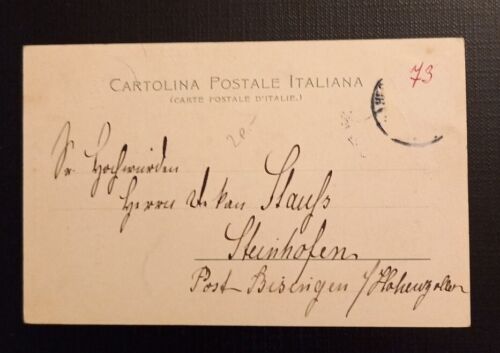 73
CARTOLINA POSTALE ITALIANA
(CARTE POSTALE D'ITALIE.)
20.-
Sr. Hochwürden
Herrn Dekan Stauss
Steinhofen
Post Bisingen / Hohenzollern